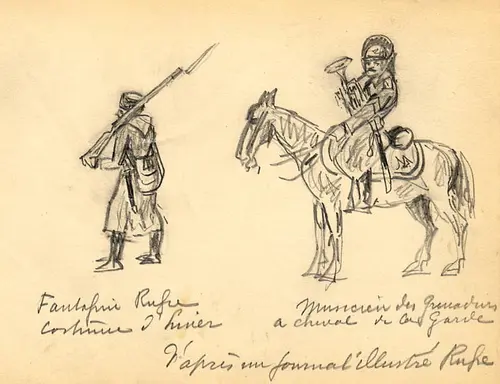 Fantassin Russe
costume d'hiver
Musicien des Grenadiers
a cheval de la Garde
D'après un journal illustré Russe